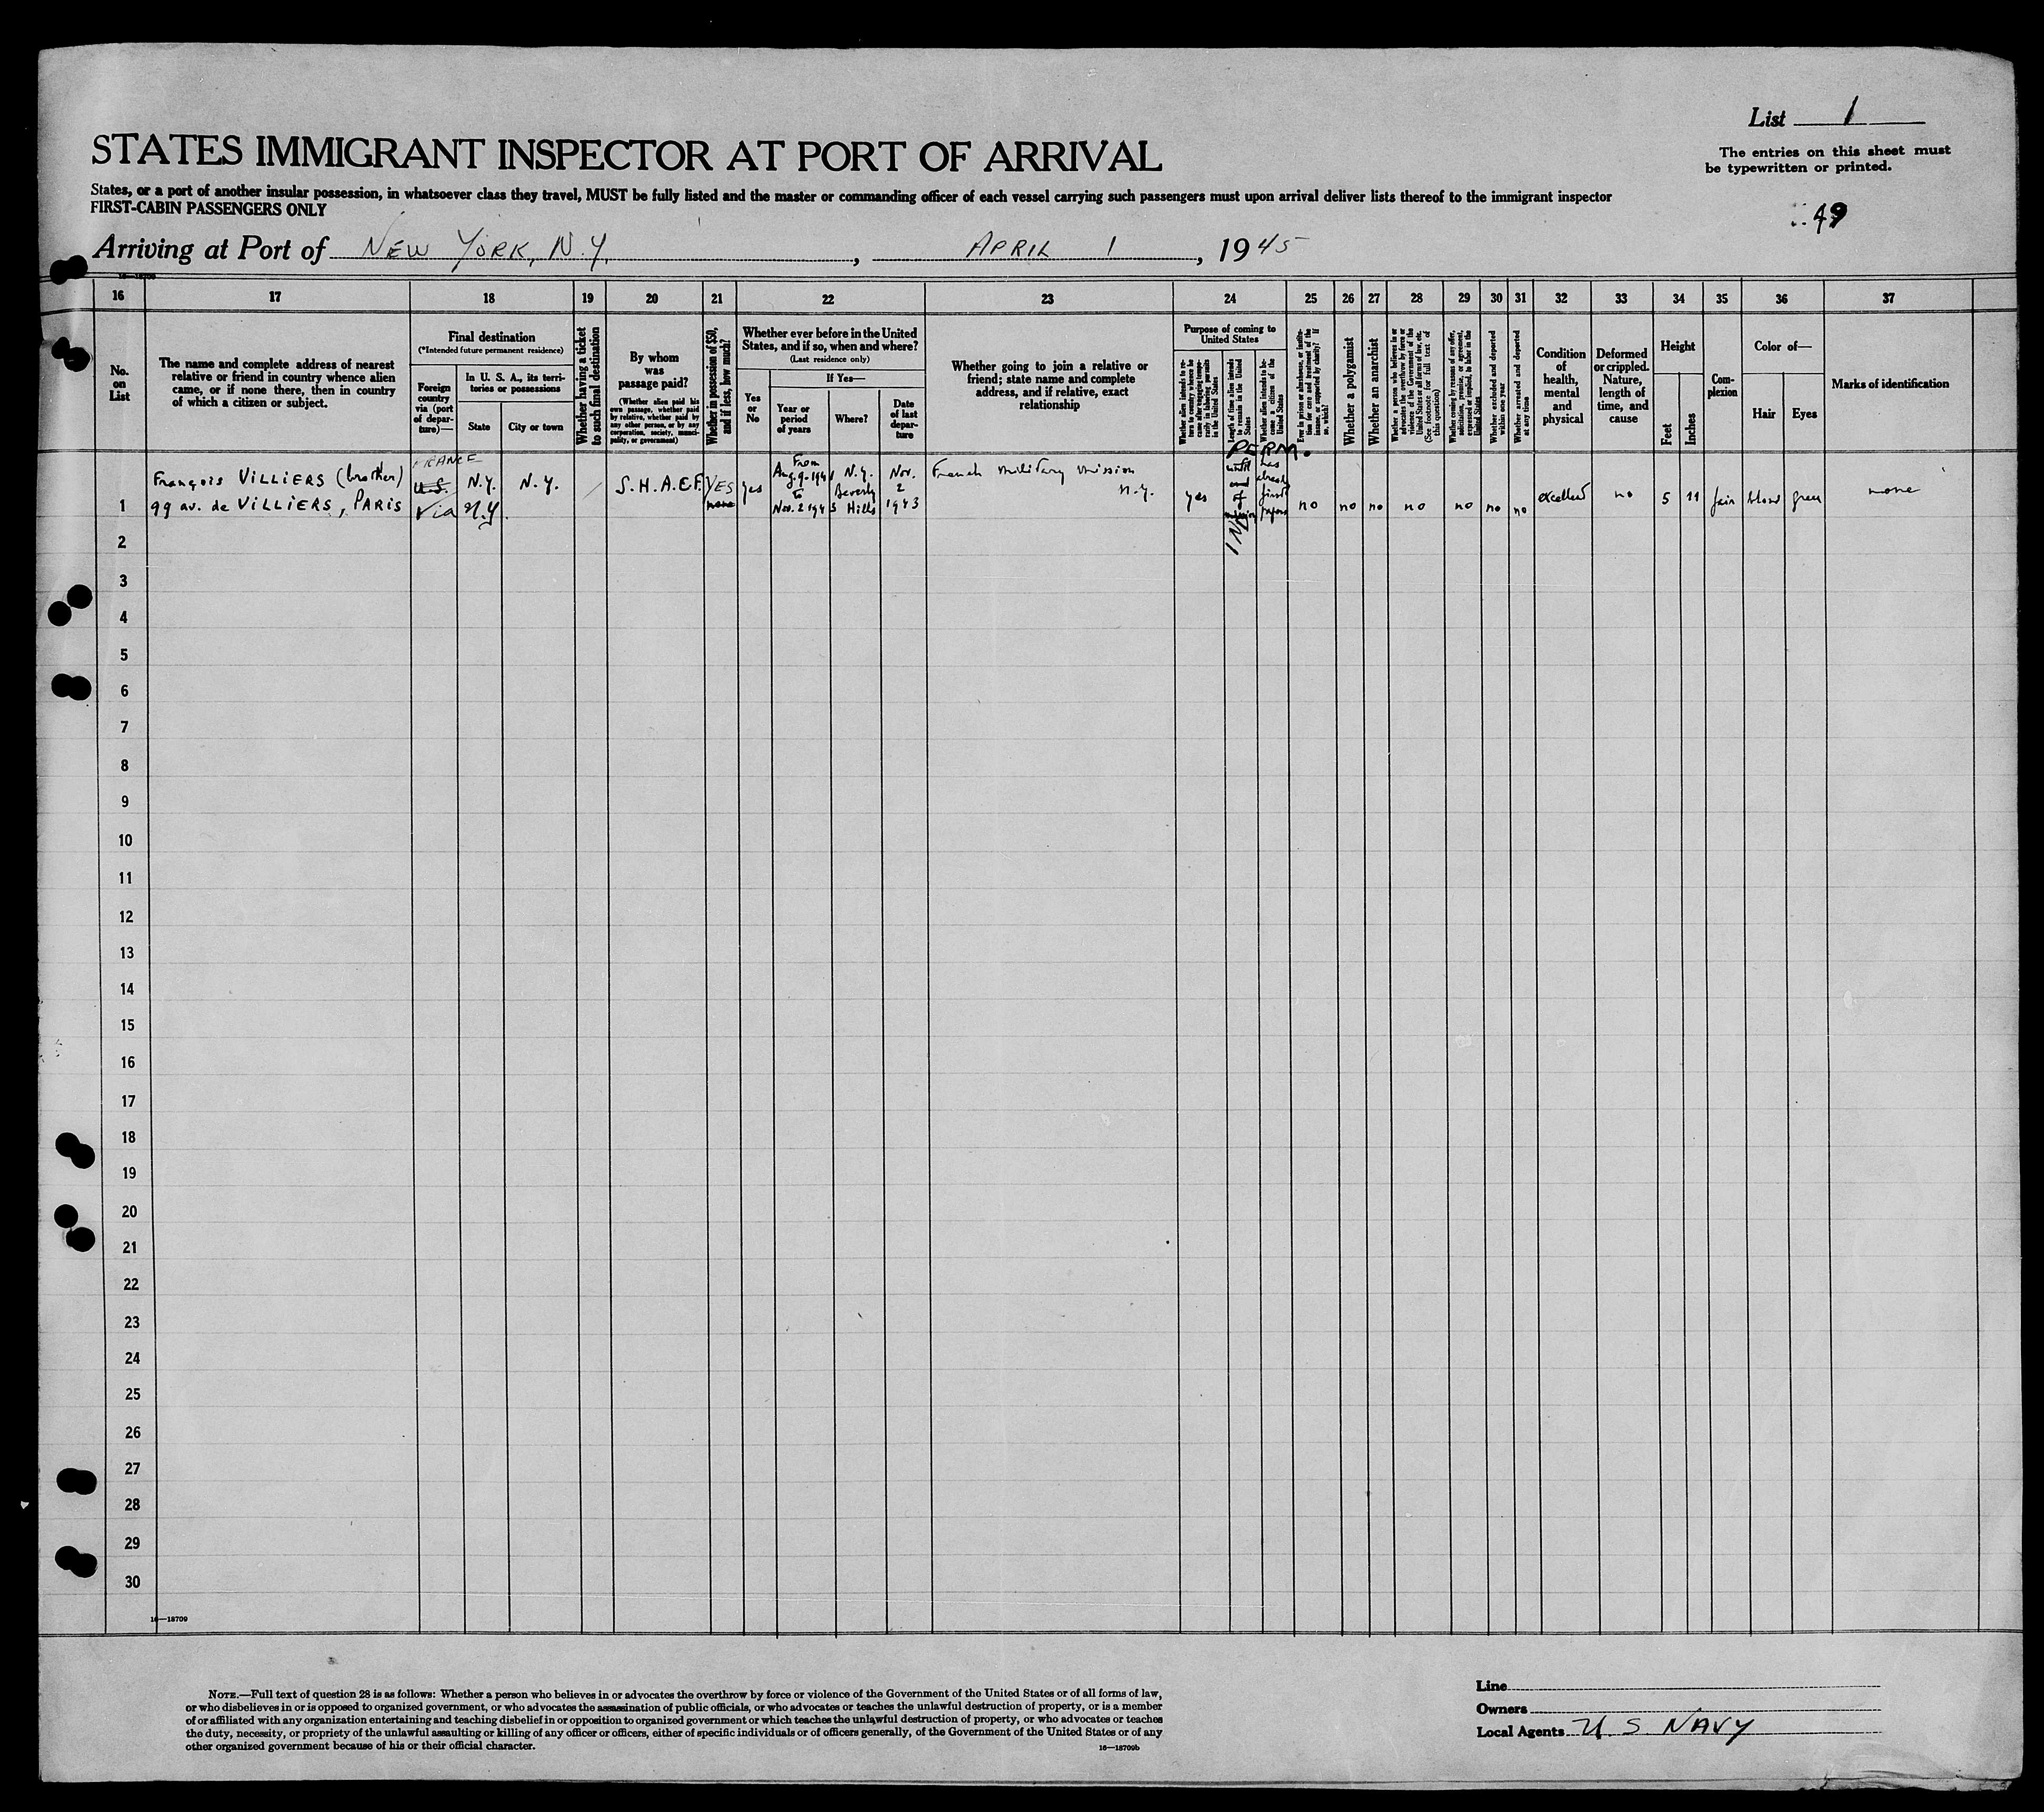 List 1
STATES IMMIGRANT INSPECTOR AT PORT OF ARRIVAL
The entries on this sheet must
be typewritten or printed.
States, or a port of another insular possession, in whatsoever class they travel, MUST be fully listed and the master or commanding officer of each vessel carrying such passengers must upon arrival deliver lists thereof to the immigrant inspector
FIRST-CABIN PASSENGERS ONLY
49
Arriving at Port of NEW YORK, N.Y., APRIL 1, 1945
16 17 18 19 20 21 22 23 24 25 26 27 28 29 30 31 32 33 34 35 36 37
No.
on
List
The name and complete address of nearest
relative or friend in country whence alien
came, or if none there, then in country
of which a citizen or subject.
Final destination
(*Intended future permanent residence)
Foreign
country
via (port
of depar-
ture)—
In U. S. A., its terri-
tories or possessions
State
City or town
Whether having a ticket
to such final destination
By whom
was
passage paid?
(Whether alien paid his
own passage, whether paid
by relative, whether paid by
any other person, or by any
corporation, society, munici-
pality, or government)
Whether in possession of $50,
and if less, how much?
Whether ever before in the United
States, and if so, when and where?
(Last residence only)
Yes
or
No
If Yes—
Year or
period
of years
Where?
Date
of last
depar-
ture
Whether going to join a relative or
friend; state name and complete
address, and if relative, exact
relationship
Purpose of coming to
United States
Whether alien intends to re-
turn to country whence he
came after engaging tempo-
rarily in laboring pursuits
in the United States
Length of time alien intends
to remain in the United
States
Whether alien intends to be-
come a citizen of the
United States
Ever in prison or almshouse, or institu-
tion for care and treatment of the
insane, or supported by charity? If
so, which?
Whether a polygamist
Whether an anarchist
Whether a person who believes in or
advocates the overthrow by force or
violence of the Government of the
United States or all forms of law, etc.
(See footnote for full text of
this question)
Whether coming by reason of any offer,
solicitation, promise, or agreement,
expressed or implied, to labor in the
United States
Whether excluded and deported
within one year
Whether arrested and deported
at any time
Condition
of
health,
mental
and
physical
Deformed
or crippled.
Nature,
length of
time, and
cause
Height
Feet
Inches
Com-
plexion
Color of—
Hair
Eyes
Marks of identification
PERM.
FRANCE
François VILLIERS (brother)
99 av. de VILLIERS, PARIS
U.S.
Via N.Y.
N.Y.
N.Y.
S.H.A.E.F.
YES
none
yes
From
Aug. 9. 1941
to
Nov. 2 1943
N.Y.
Beverly
Hills
Nov.
2
1943
French military mission
N.Y.
yes
until
end of
has
already
first
papers
no no no no no no no
excellent
no
5 11
fair
blond
green
none
1
2
3
4
5
6
7
8
9
10
11
12
13
14
15
16
17
18
19
20
21
22
23
24
25
26
27
28
29
30
16—18709
NOTE.—Full text of question 28 is as follows: Whether a person who believes in or advocates the overthrow by force or violence of the Government of the United States or of all forms of law,
or who disbelieves in or is opposed to organized government, or who advocates the assassination of public officials, or who advocates or teaches the unlawful destruction of property, or is a member
of or affiliated with any organization entertaining and teaching disbelief in or opposition to organized government or which teaches the unlawful destruction of property, or who advocates or teaches
the duty, necessity, or propriety of the unlawful assaulting or killing of any officer or officers, either of specific individuals or of officers generally, of the Government of the United States or of any
other organized government because of his or their official character.
16—18709b
Line
Owners
Local Agents U S NAVY